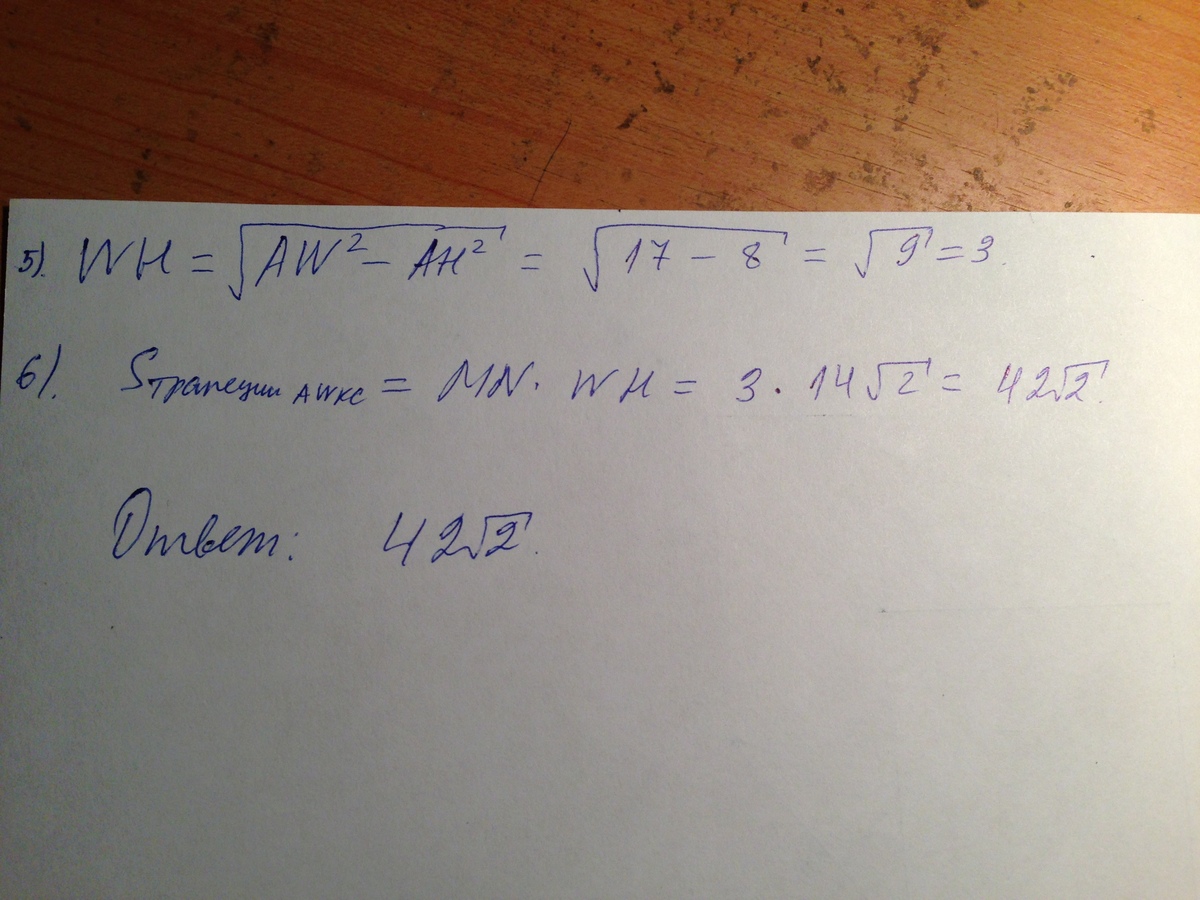 5). WH = √(AW² - AH²) = √(17 - 8) = √9 = 3.
6). Sтрапеции AWKC = MN · WH = 3 · 14√2 = 42√2.
Ответ: 42√2.